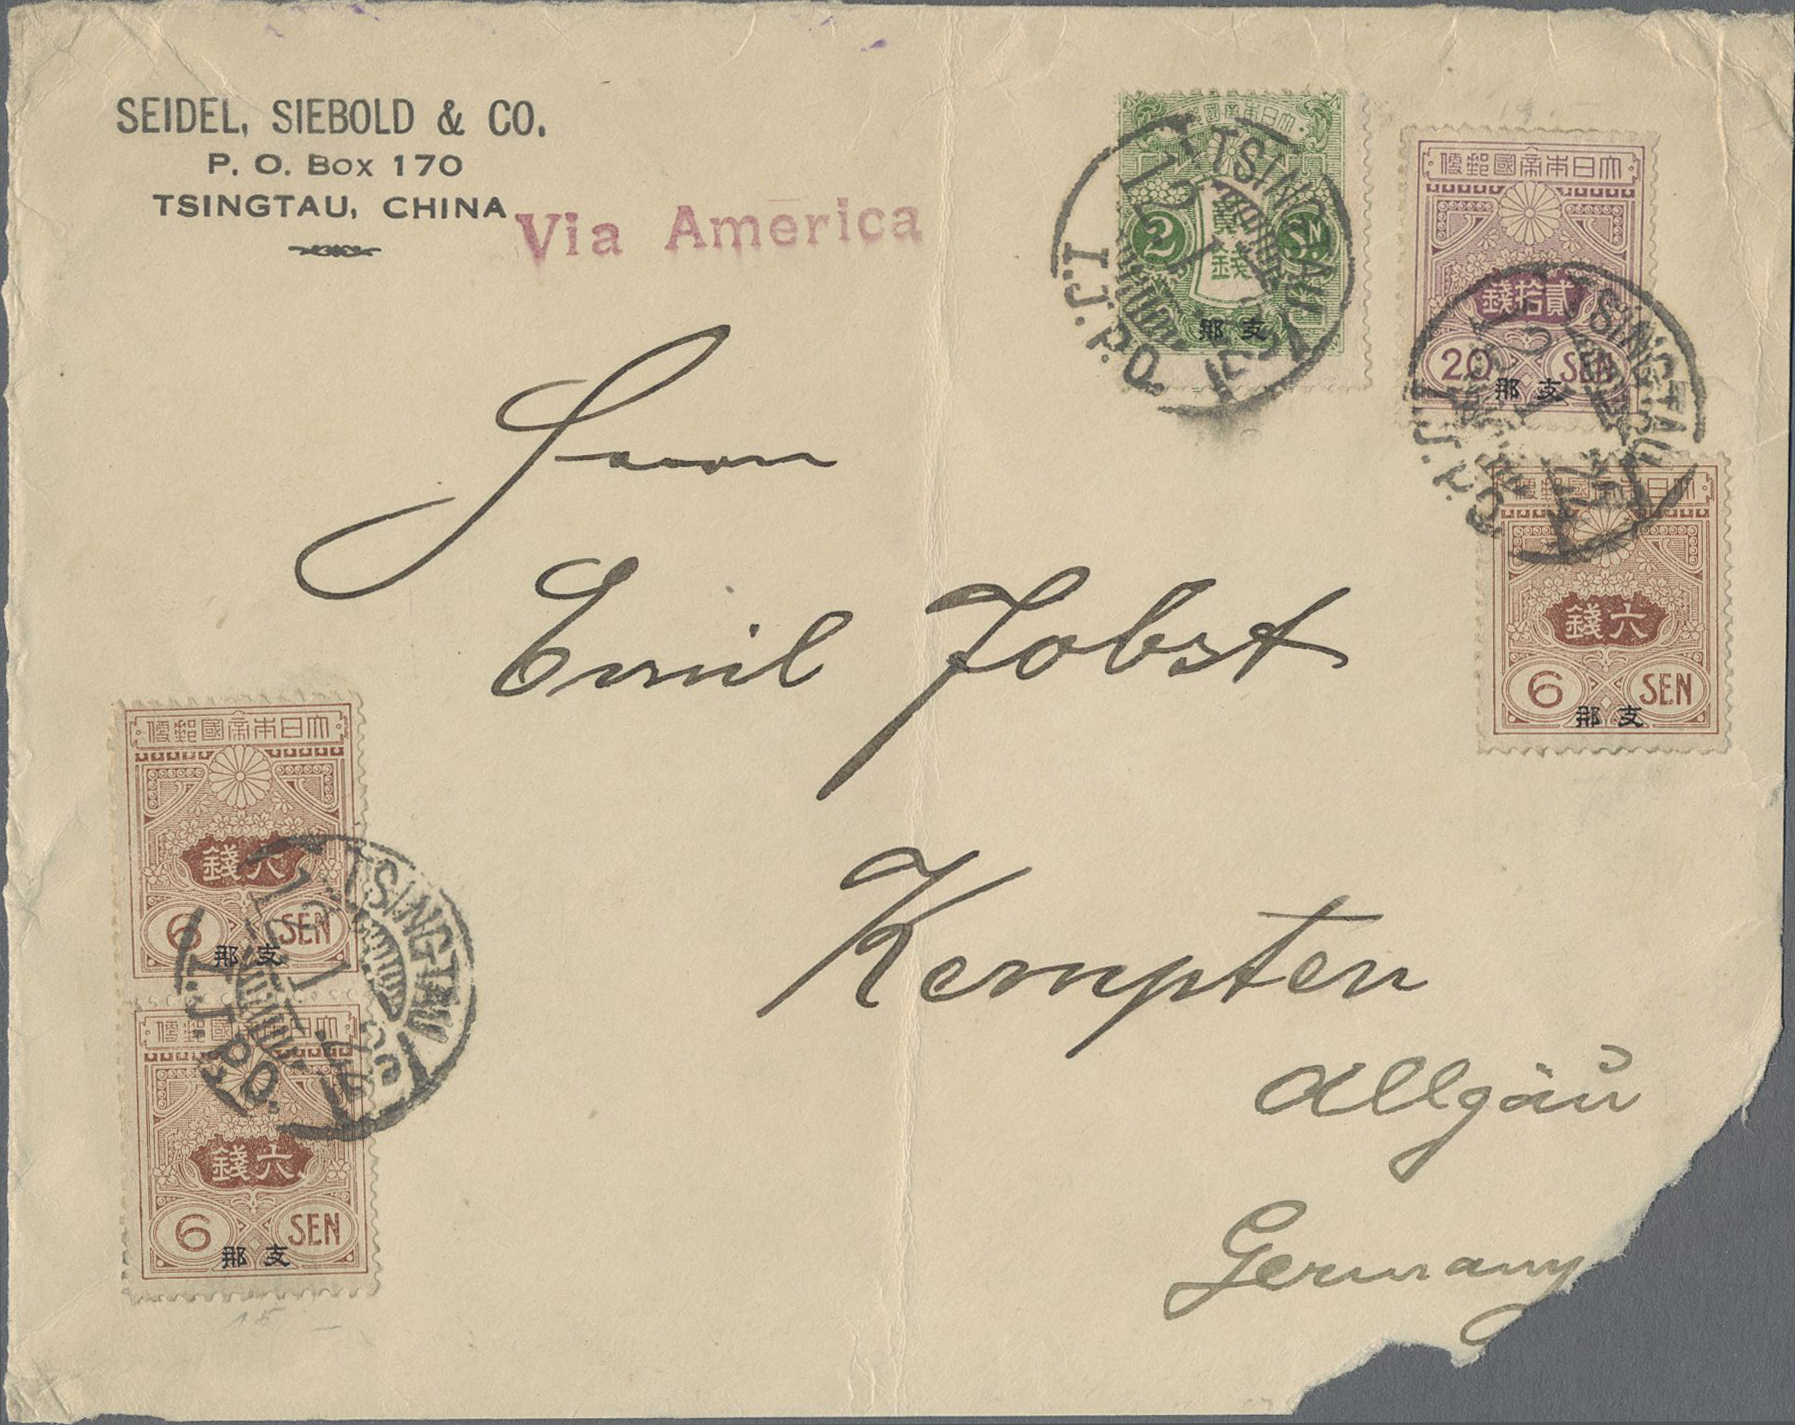 SEIDEL, SIEBOLD & CO.
P. O. Box 170
TSINGTAU, CHINA
Via America
大日本帝國郵便
2 貳錢 SN
支那
TSINGTAU
I.J.P.O.
大日本帝國郵便
貳拾錢
20 SEN
支那
TSINGTAU
I.J.P.O.
大日本帝國郵便
六錢
6 SEN
支那
Herrn
Emil Jobst
Kempten
Allgäu
Germany
大日本帝國郵便
六錢
6 SEN
支那
TSINGTAU
I.J.P.O.
大日本帝國郵便
六錢
6 SEN
支那